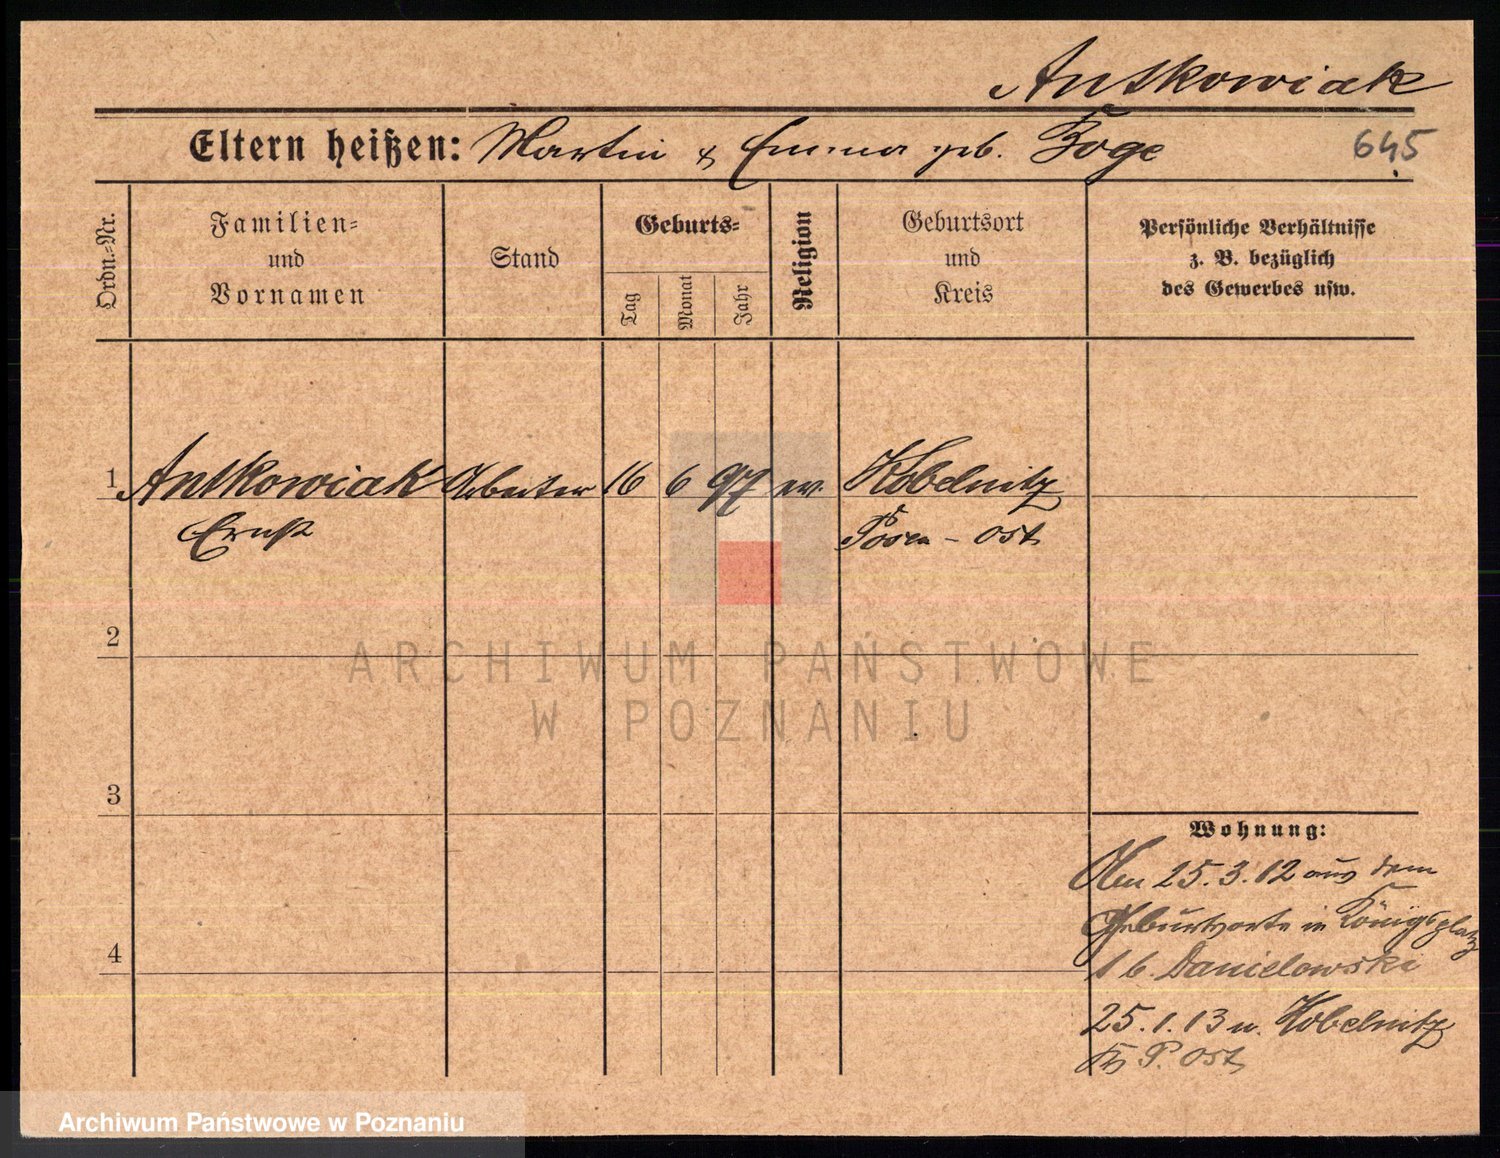 Antkowiak
Eltern heißen: Martin & Emma geb. Boge
645
Ordn.-Nr.
Familien-
und
Vornamen
Stand
Geburts-
Tag
Monat
Jahr
Religion
Geburtsort
und
Kreis
Persönliche Verhältnisse
z. B. bezüglich
des Gewerbes usw.
1 Antkowiak Arbeiter 16 6 97 ev. Kobelnitz
Ernst Posen - Ost
2
ARCHIWUM PAŃSTWOWE
W POZNANIU
3
Wohnung:
Am 25.3.12 aus dem
Geburtsorte in Königsplatz
4
1 b. Danielowski
25.1.13 n. Kobelnitz
Kr. P. Ost
Archiwum Państwowe w Poznaniu